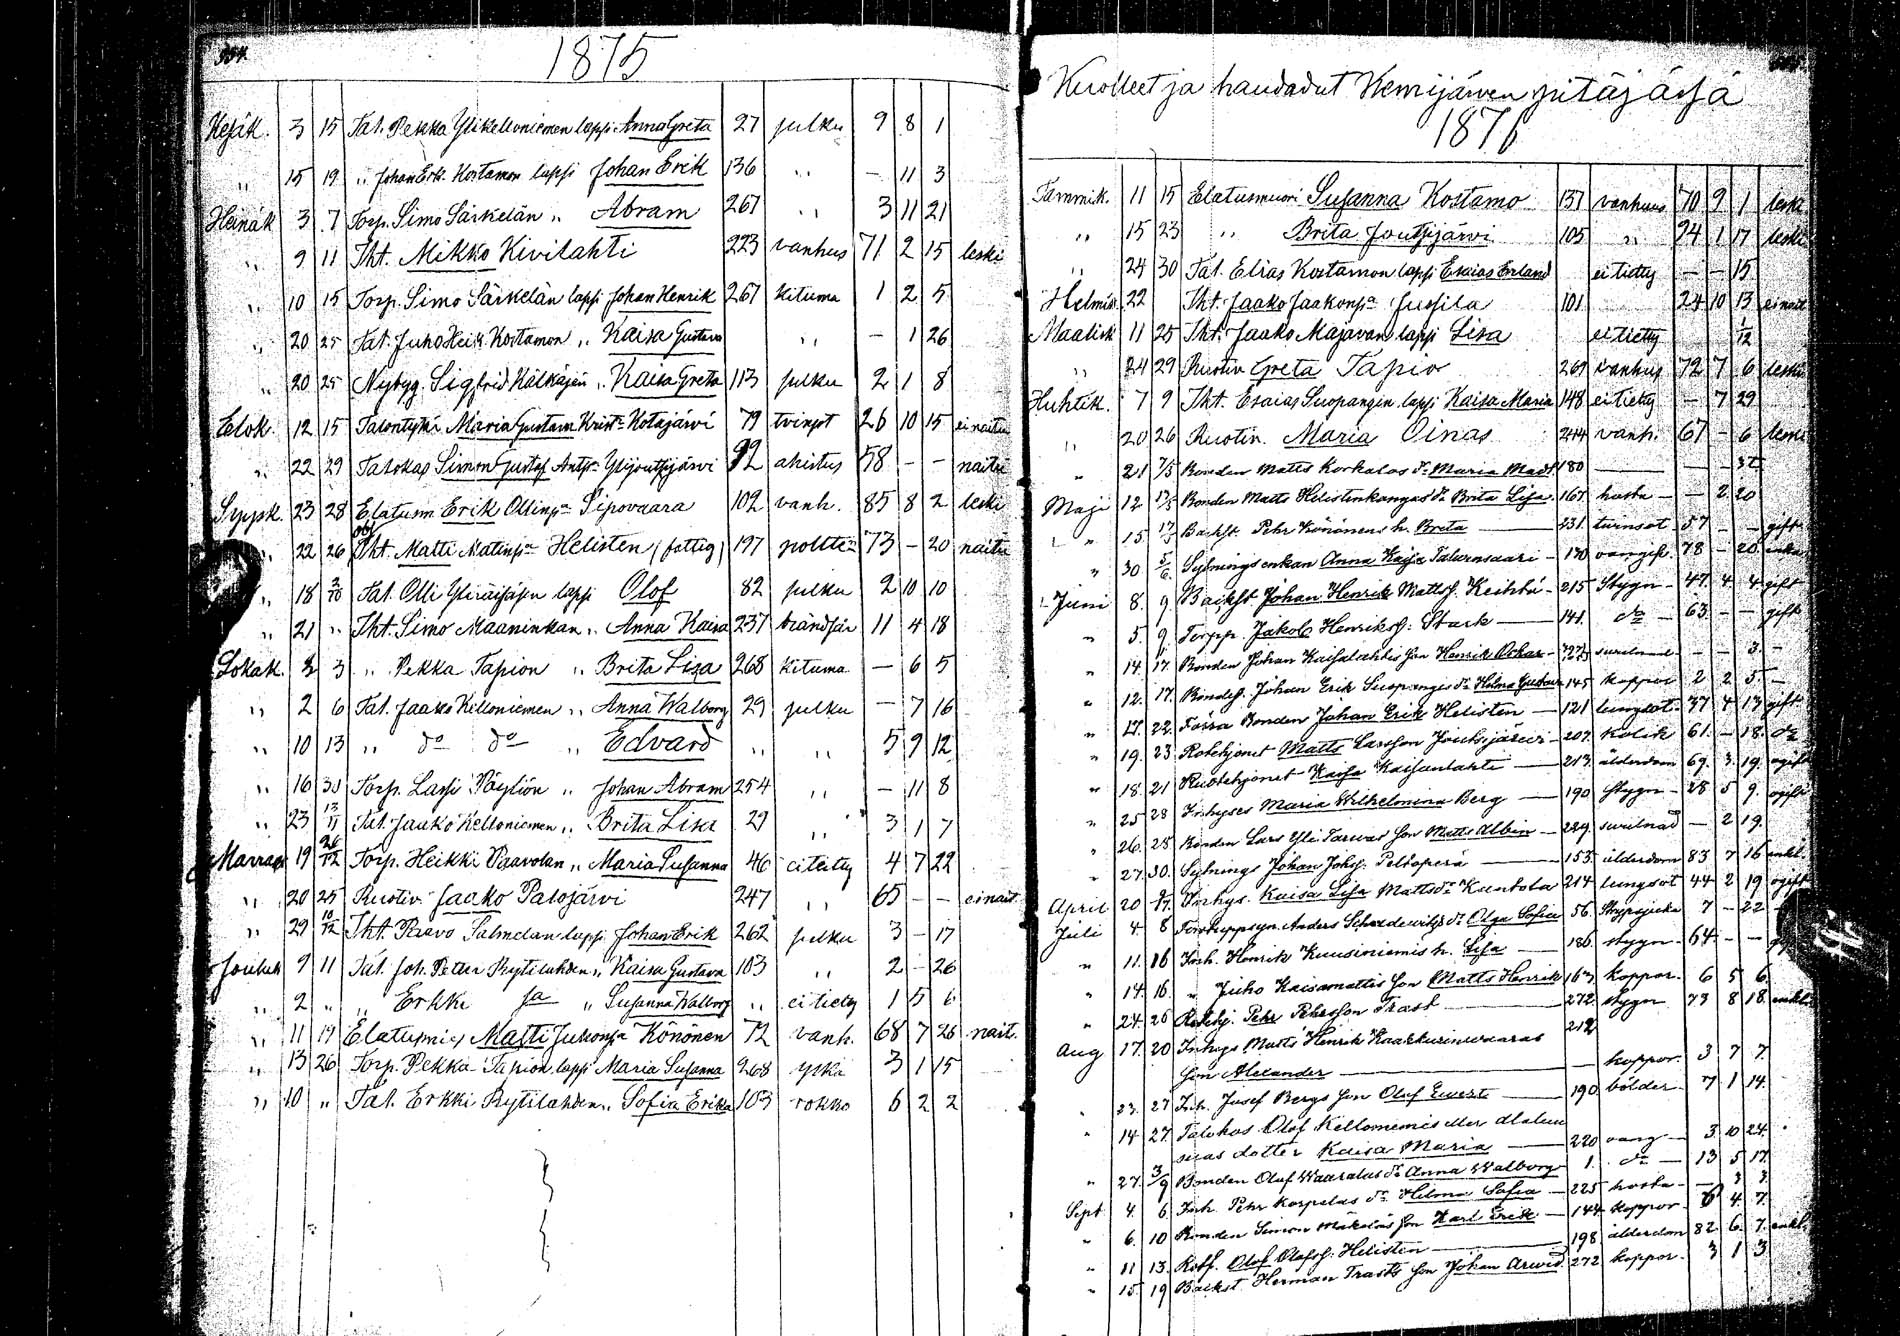 334.
1875
Kesäk. 3 15 Tal. Pekka Ylikelloniemen lapsi Anna Greta 27 pulku 9 8 1
„ 15 19 „ Johan Erk. Kostamon lapsi Johan Erik 136 „ - 11 3
Heinäk 3 7 Torp. Simo Särkelän „ Abram 267 „ 3 11 21
„ 9 11 Iht. Mikko Kivilahti 223 vanhus 71 2 15 leski
„ 10 15 Torp. Simo Särkelän lapsi Johan Henrik 267 kituma 1 2 5
„ 20 25 Tal. Juho Heik. Kostamon „ Kaisa Gustava „ - 1 26
„ 20 25 Nybyg. Sigfrid Kälkäjen „ Kaisa Greta 113 pulku 2 1 8
Elok. 12 15 Talontytti Maria Gustava Krist. Kotajärvi 79 tvinsot 26 10 15 ei naitu
„ 22 29 Talokas Simon Gustaf Antp. Ylijoutsijärvi 92 ahistus 58 - - naitu
Syysk. 23 28 Elatusm Erik Ollinp. Sipovaara 102 vanh. 85 8 2 leski
„ 22 26 Iht. Matti Matinp. Helisten (fattig) 197 polttia 73 - 20 naitu
„ 18 3/10 Tal. Olli Yliräisäsen lapsi Olof 82 pulku 2 10 10
„ 21 „ Iht. Simo Maaninkan „ Anna Kaisa 237 brändsår 11 4 18
Lokak. 2 3 „ Pekka Tapion „ Brita Lisa 268 kituma - 6 5
„ 2 6 Tal. Jaako Kelloniemen „ Anna Walborg 29 pulku - 7 16
„ 10 13 „ do do „ Edvard „ „ 5 9 12
„ 16 30 Torp. Lassi Pöyliön „ Johan Abram 254 „ - 11 8
„ 23 13/11 Tal. Jaako Kelloniemen „ Brita Lisa 29 „ 3 1 7
Marrask 19 26/12 Torp. Heikki Paavolan „ Maria Susanna 46 ei tietty 4 7 22
„ 20 25 Ruotiv. Jaako Palojärvi 247 „ 65 - - ei nait.
„ 29 10/12 Iht. Paavo Salmelan lapsi Johan Erik 262 pulku 3 - 17
Jouluk 9 11 Tal. Joh. Petter Rytilahden „ Kaisa Gustava 103 „ 2 - 26
„ 2 „ „ Erkki „ Susanna Walborg „ ei tietty 1 5 6
„ 11 19 Elatusmies Matti Juhonp. Könönen 72 vanh. 68 7 26 nait.
„ 13 26 Torp. Pekka Tapion lapsi Maria Susanna 268 yskä 3 1 15
„ 10 „ Tal. Erkki Rytilahden „ Sofia Erika 103 rokko 6 2 2
Kuolleet ja haudadut Kemijärven pitäjässä
1876
Tammik. 11 15 Elatusmuori Susanna Kostamo 137 vanhuus 70 9 1 leski
„ 15 23 „ Brita Joutsijärvi 105 „ 94 1 17 leski
„ 24 30 Tal. Elias Kostamon lapsi Esaias Erland ei tietty - - 15
Helmik 22 Iht. Jaako Jaakonp. Jussila 101 24 10 13 ei nait
Maalisk 11 25 Iht. Jaako Majavan lapsi Lisa ei tietty 1/12
„ 24 29 Ruotiv. Greta Tapio 269 vanhus 72 7 6 leski
Huhtik. 7 9 Iht. Esaias Suopangin lapsi Kaisa Maria 148 ei tietty - 7 29
„ 20 26 Ruotiv. Maria Oinas 244 vanh. 67 - 6 leski
„ 21 7/5 Bonden Matts Korkalos dr Maria Mact 180 — - -
Maji 12 17/5 Bonden Matts Helistenkangas dr Brita Lisa 167 hosta - - 2 20
„ 15 17/5 Backst. Pehr Könönens h. Breta 231 57 - - gift
„ 30 5/6 Sytningsenkan Anna Kaisa Talurnsaari 170 78 - 20 enka
Juni 8. 9 Backst. Johan Henrik Matts. 215 Stygn 47. 4 4 gift
„ 5. 9 Torpp. Jakob Henriks. Stark 141. do 63 - - gift
„ 14. 17. Bonden Johan Kaisalahtis son Henrik Oskar - - 3. -
„ 12. 17. Bondes. Johan Erik Suopangis dr Helma Gustava 145 koppor 2 2 5 -
„ 17. 22. Förra Bonden Johan Erik Helisten 121 lungsot 37 4 13 gift
„ 19. 23. Rotehjonet Matts Larsson Joutsijärvi 207. kolik 61. - 18. do
„ 18. 21 Rotehjonet Kaisa Kaisanlahti 213 ålderdom 69. 3. 19. ogift
„ 25 28 Inhyses Maria Wilhelmina Berg 190 stygn 28 5 9. ogift
„ 26. 28 Bonden Lars Yli Tarvas son Matts Albin 229. - 2 19.
„ 27. 30. Sytnings Johan Johs. Peltoperä 153. ålderdom 83 7 16 enkl.
April 20 Inhys. Kaisa Lisa Mattsdr Kuntola 214 lungsot 44 2 19 ogift
Juli 4. 8 Anders dr Olga Sofia 56. Strypsjuka 7 - 22 -
„ 11. 16 Inh. Henrik Kuusiniemis h. Lisa 186. stygn 64 - -
„ 14. 16. „ Juho Kaisamattis son Matts Henrik 163 koppor 6 5 6
„ 24. 26 Rotehj. Pehr Pehrsson Trast 272 stygn 73 8 18. enkl.
Aug 17. 20 Inhys Matts Henrik Kaakkurivaaras 212
son Alexander — koppor. 3 7 7.
„ 23. 27 Inh. Josef Bergs son Olof Evert 190. bölder 7 1 14.
„ 14 27. Talokas Olof Kelloniemis
dotter Kaisa Maria 220 vang 3 10 24.
„ 27. 3/9 Bonden Olof Waaralas dr Anna Walborg 1. do 13 5 17.
Sept 4. 6. Inh. Pehr Karpelas dr Helma Sofia 225 hosta - 3 3.
„ 6. 10 Bonden Simon Mäkelas son Karl Erik 144 koppor 6 4 7.
„ 11 13. Olof Olofs. Helisten 198 ålderdom 82 6. 7. enkl.
„ 15. 19 Backst. Herman Trasts son Johan Arvid 272 koppor. 3 1 3